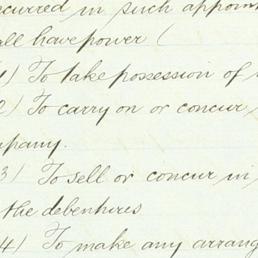 curred in such appoint
all have power (
1) To take possession of
2) To carry on or concur
mpany.
3) To sell or concur in
the debentures
4) To make any arrang